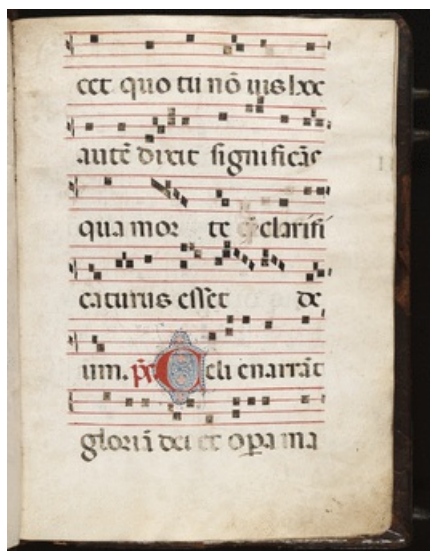 cet quo tu nō uis hoc
autē dixit significās
qua mor te clarifi
caturus esset de
um. ps Celi enarrāt
gloriā dei et opa ma